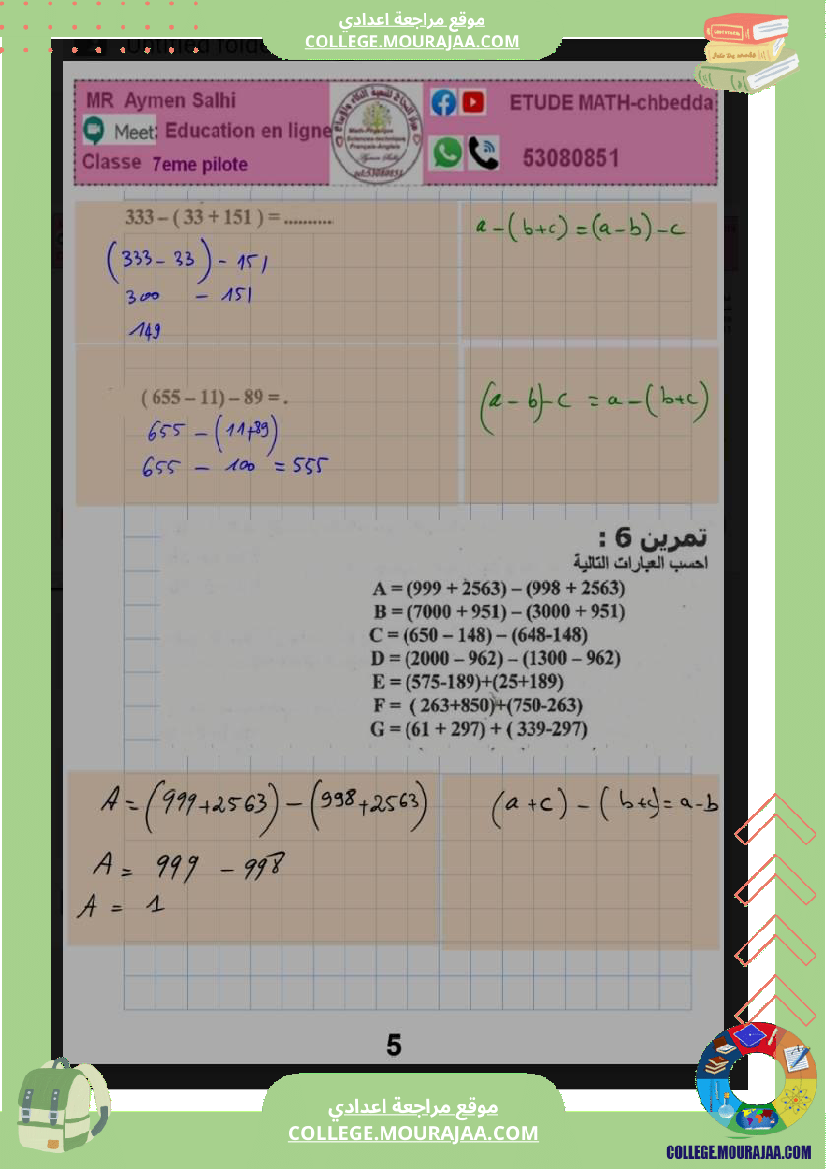 موقع مراجعة اعدادي
COLLEGE.MOURAJAA.COM
Untitled folde
MR Aymen Salhi
Meet: Education en ligne
Classe 7eme pilote
ETUDE MATH-chbedda
53080851
333 – ( 33 + 151 ) = ..........
(333 - 33) - 151
300 - 151
149
a - (b+c) = (a-b) - c
( 655 – 11) – 89 = .
655 - (11+89)
655 - 100 = 555
(a - b) - c = a - (b+c)
تمرين 6 :
احسب العبارات التالية
A = (999 + 2563) – (998 + 2563)
B = (7000 + 951) – (3000 + 951)
C = (650 – 148) – (648-148)
D = (2000 – 962) – (1300 – 962)
E = (575-189)+(25+189)
F = ( 263+850)+(750-263)
G = (61 + 297) + ( 339-297)
A = (999+2563) - (998+2563)
A = 999 - 998
A = 1
(a+c) - (b+c) = a-b
5
موقع مراجعة اعدادي
COLLEGE.MOURAJAA.COM
COLLEGE.MOURAJAA.COM